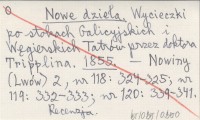 Nowe dzieła. Wycieczki
po stokach Galicyjskich i
Węgierskich Tatrów przez doktora
Tripplina. 1855. — Nowiny
(Lwów) 2, nr 118: 324-325; nr
119: 332-333; nr 120: 339-341.
Recenzja.